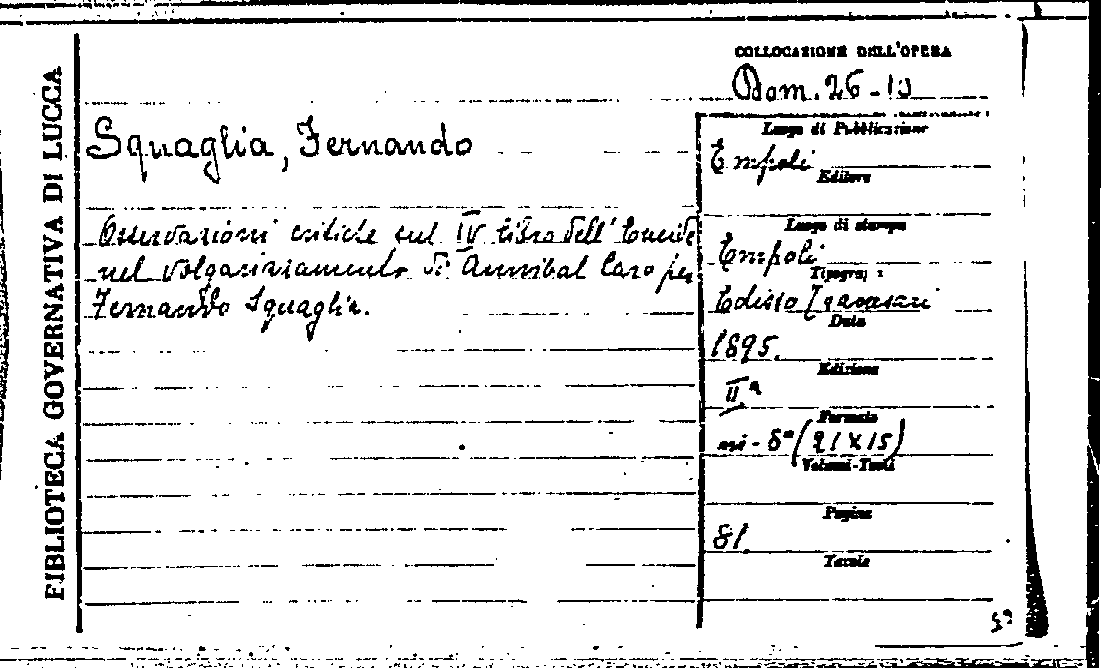 BIBLIOTECA GOVERNATIVA DI LUCCA
COLLOCAZIONE DELL'OPERA
Dom. 26-10
Squaglia, Fernando
Osservazioni critiche sul IV libro dell'Eneide
nel volgarizzamento di Annibal Caro per
Fernando Squaglia.
Luogo di Pubblicazione
Empoli
Editore
Luogo di stampa
Empoli
Tipografo
Edisso Traversari
Data
1895.
Edizione
IIª
Formato
in-8º (21X15)
Volumi-Tomi
Pagine
81.
Tavole